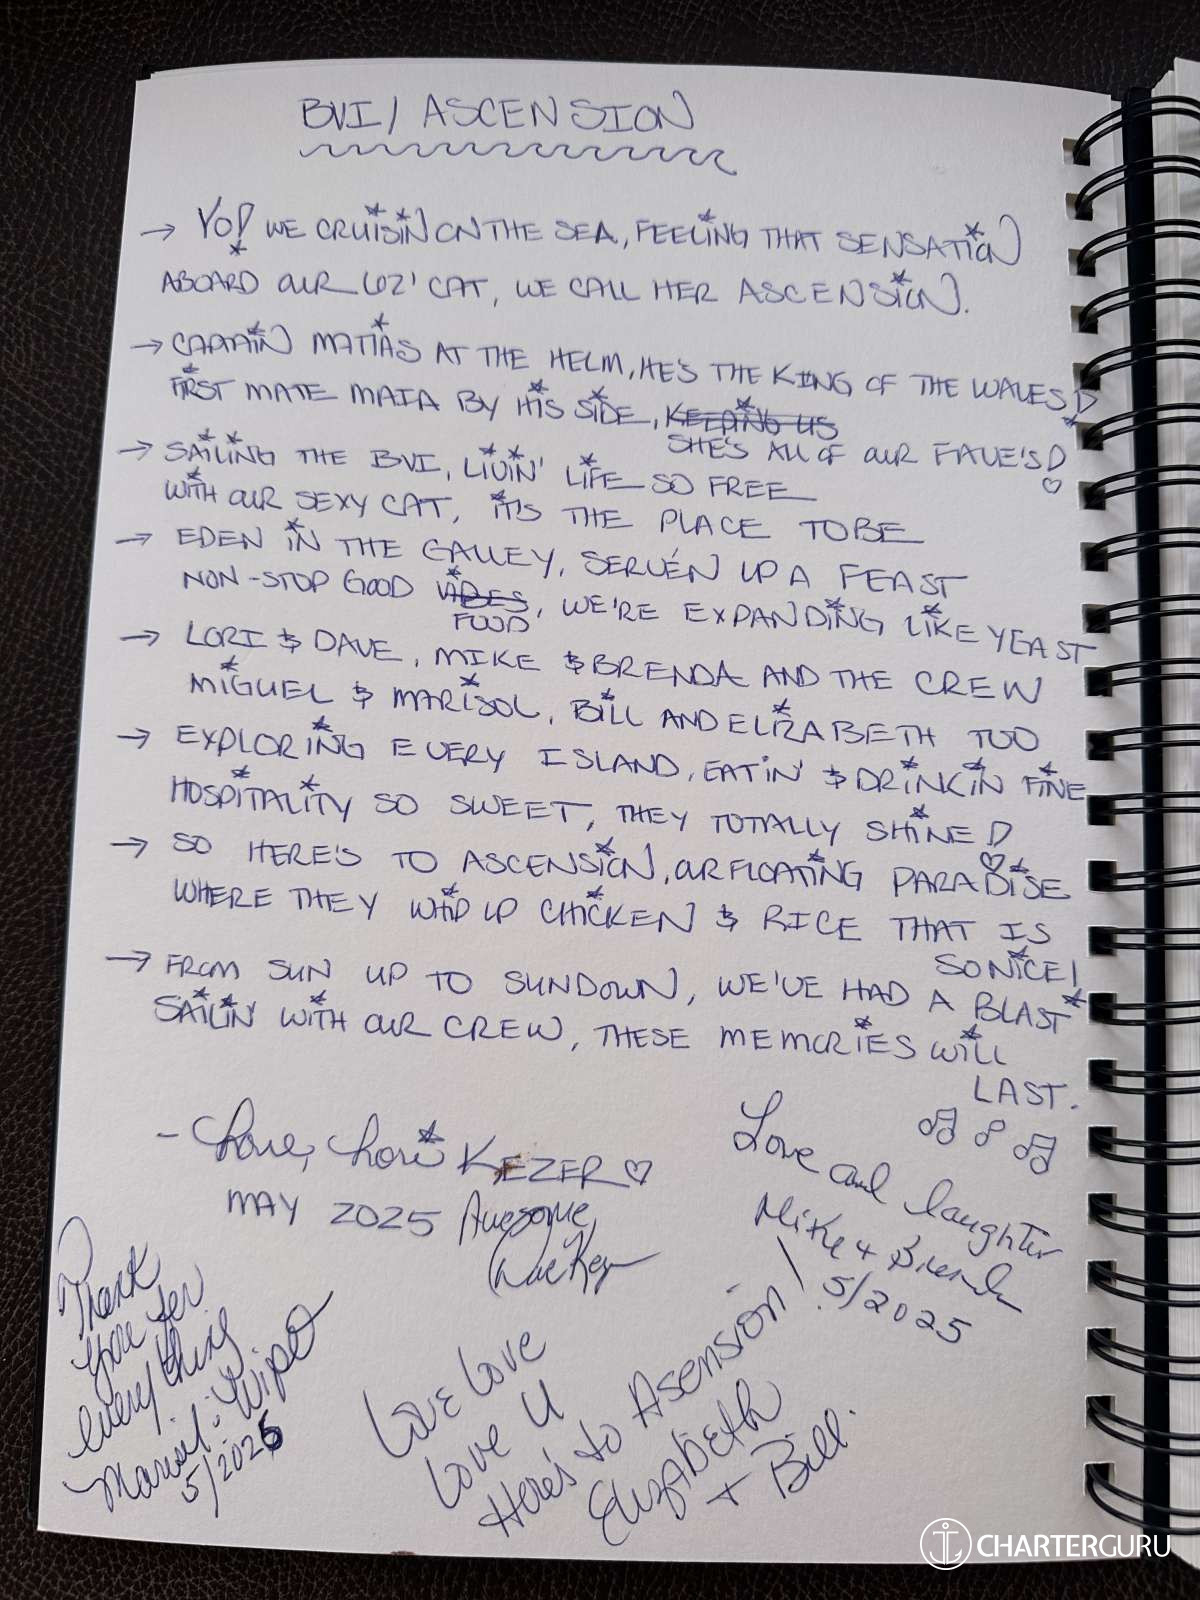 BVI / ASCENSION
→ YO! WE CRUISIN ON THE SEA, FEELING THAT SENSATION
ABOARD OUR 62' CAT, WE CALL HER ASCENSION.
→ CAPTAIN MATIAS AT THE HELM, HE'S THE KING OF THE WAVES!
FIRST MATE MAIA BY HIS SIDE, KEEPING US
SHE'S ALL OF OUR FAVE'S! ♡
→ SAILING THE BVI, LIVIN' LIFE SO FREE
WITH OUR SEXY CAT, IT'S THE PLACE TO BE
→ EDEN IN THE GALLEY, SERVEN UP A FEAST
NON-STOP GOOD VIBES, WE'RE EXPANDING LIKE YEAST
FOOD
→ LORI & DAVE, MIKE & BRENDA AND THE CREW
MIGUEL & MARISOL, BILL AND ELIZABETH TOO
→ EXPLORING EVERY ISLAND, EATIN' & DRINKIN FINE
HOSPITALITY SO SWEET, THEY TOTALLY SHINE! ♡
→ SO HERE'S TO ASCENSION, OUR FLOATING PARADISE
WHERE THEY WHIP UP CHICKEN & RICE THAT IS
SO NICE!
→ FROM SUN UP TO SUNDOWN, WE'VE HAD A BLAST
SAILIN' WITH OUR CREW, THESE MEMORIES WILL
LAST.
- Love, Lori KEZER ♡
MAY 2025
Awesome,
Love and laughter
Mike + Brenda
5/2025
Thank
you for
everything
5/2025
Live Love
Love U
Here's to Asension!
Elizabeth
+ Bill.
CHARTERGURU